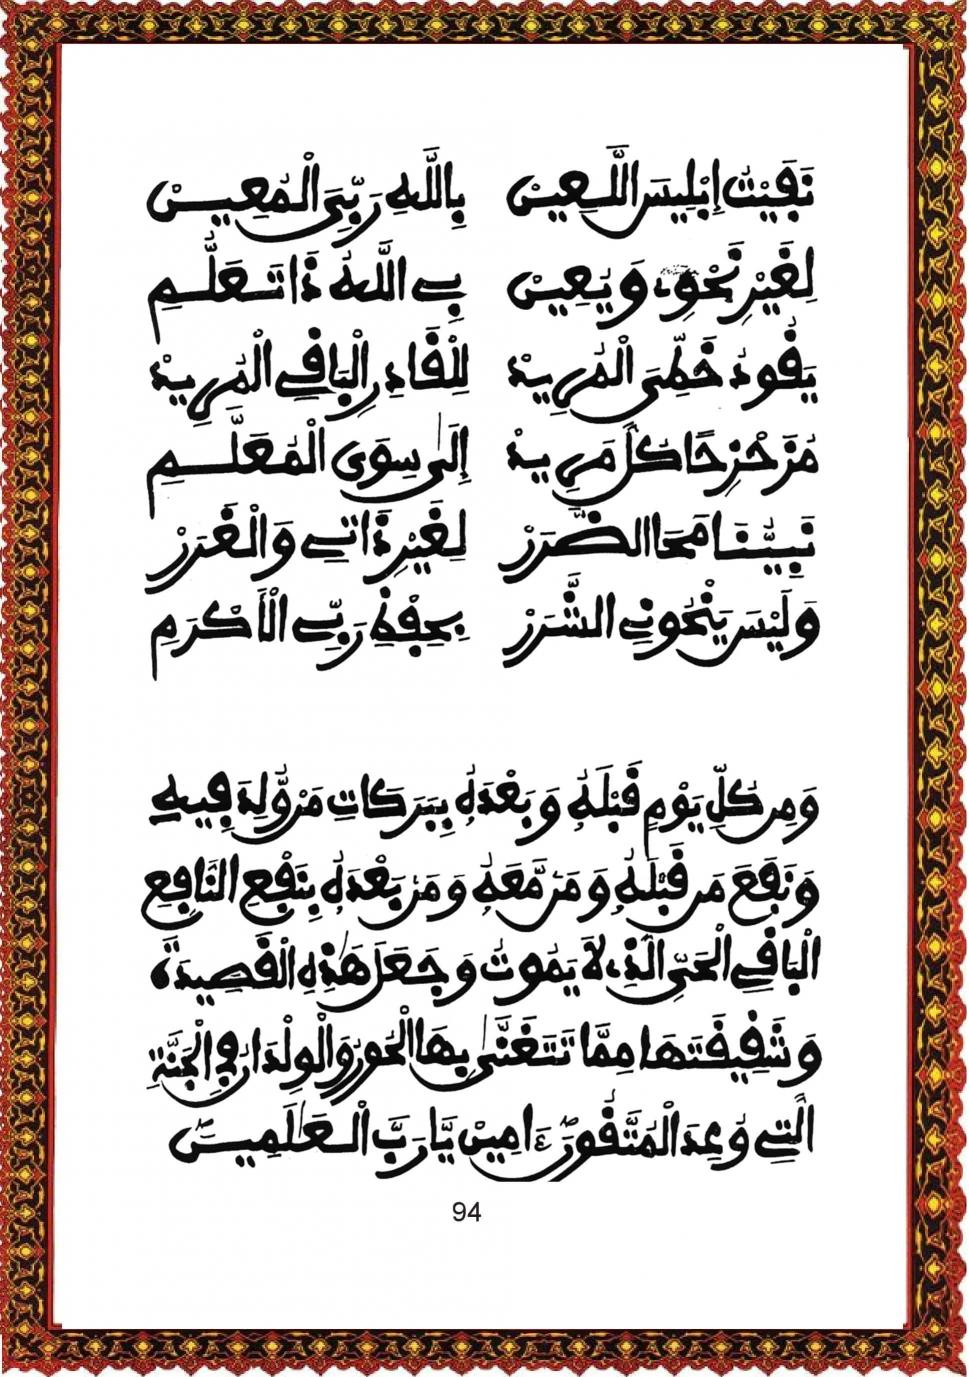 نَفَيْتُ إِبْلِيسَ اللَّعِينْ بِاللَّهِ رَبِّىَ الْمُعِينْ
لِغَيْرِ نَحْوِى وَيُعِينْ بِى اللَّهُ ذَا تَعَلُّمِ
يَقُودُ خَطِّىَ الْمُرِيدْ لِلْقَادِرِ الْبَاقِى الْمُرِيدْ
مُزَحْزِحًا كُلَّ مَرِيدْ إِلَى سِوَى الْمُعَلَّمِ
نَبِيُّنَا مَحَا الضَّرَرْ لِغَيْرِ ذَاتِى وَالْغَرَرْ
وَلَيْسَ يَنْحُونِى الشَّرَرْ بِحِفْظِ رَبِّى الْأَكْرَمِ
وَمِن كُلِّ يَوْمٍ قَبْلَهُ وَبَعْدَهُ بِبَرَكَاتِ مَن وُّلِدَ فِيهِ
وَنَفَعَ مَن قَبْلَهُ وَمَن مَّعَهُ وَمَن بَعْدَهُ بِنَفْعِ النَّافِعِ
الْبَاقِى الْحَىِّ الَّذِى لَا يَمُوتُ وَجَعَلَ هَٰذِهِ الْقَصِيدَةَ
وَشَقِيقَتَهَا مِمَّا تَتَغَنَّى بِهَا الْحُورُ وَالْوِلْدَانُ فِى الْجَنَّةِ
الَّتِى وُعِدَ الْمُتَّقُونَ ءَامِينْ يَا رَبَّ الْعَٰلَمِينَ
94